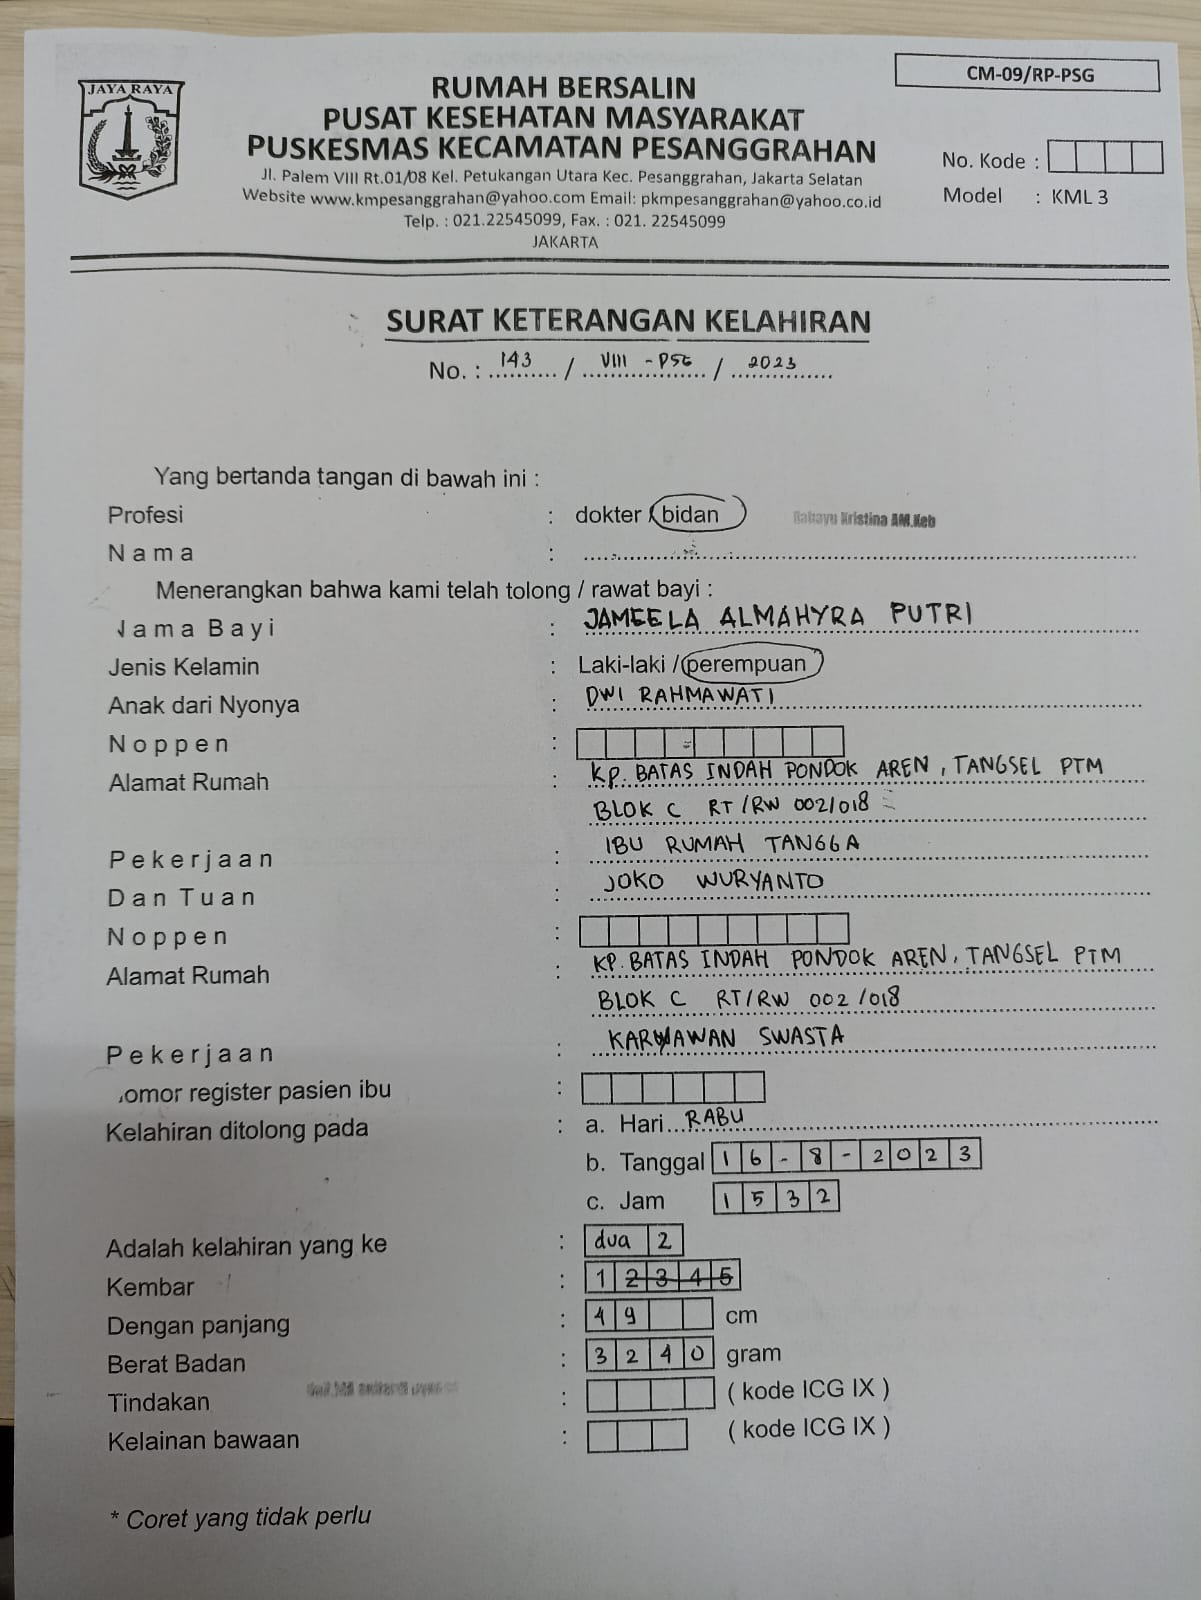 JAYA RAYA
CM-09/RP-PSG
RUMAH BERSALIN
PUSAT KESEHATAN MASYARAKAT
PUSKESMAS KECAMATAN PESANGGRAHAN
Jl. Palem VIII Rt.01/08 Kel. Petukangan Utara Kec. Pesanggrahan, Jakarta Selatan
Website www.kmpesanggrahan@yahoo.com Email: pkmpesanggrahan@yahoo.co.id
Telp. : 021.22545099, Fax. : 021. 22545099
JAKARTA
No. Kode :
Model : KML 3
SURAT KETERANGAN KELAHIRAN
No. : 143 / VIII - PSG / 2023
Yang bertanda tangan di bawah ini :
Profesi : dokter / bidan
Rahayu Kristina AM.Keb
N a m a :
Menerangkan bahwa kami telah tolong / rawat bayi :
a m a B a y i : JAMEELA ALMAHYRA PUTRI
Jenis Kelamin : Laki-laki / perempuan
Anak dari Nyonya : DWI RAHMAWATI
N o p p e n : -
Alamat Rumah : KP. BATAS INDAH PONDOK AREN, TANGSEL PTM
BLOK C RT/RW 002/018
P e k e r j a a n : IBU RUMAH TANGGA
D a n T u a n : JOKO WURYANTO
N o p p e n :
Alamat Rumah : KP. BATAS INDAH PONDOK AREN, TANGSEL PTM
BLOK C RT/RW 002/018
P e k e r j a a n : KARYAWAN SWASTA
omor register pasien ibu :
Kelahiran ditolong pada : a. Hari... RABU
b. Tanggal 16-8-2023
c. Jam 1532
Adalah kelahiran yang ke : dua 2
Kembar : 1 2 3 4 5
Dengan panjang : 49 cm
Berat Badan : 3240 gram
Tindakan : ( kode ICG IX )
Kelainan bawaan : ( kode ICG IX )
* Coret yang tidak perlu